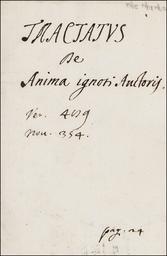 TRACTATVS
De
Anima ignoti Auctoris.
Vet. 409
Nou. 354.
pag. 24